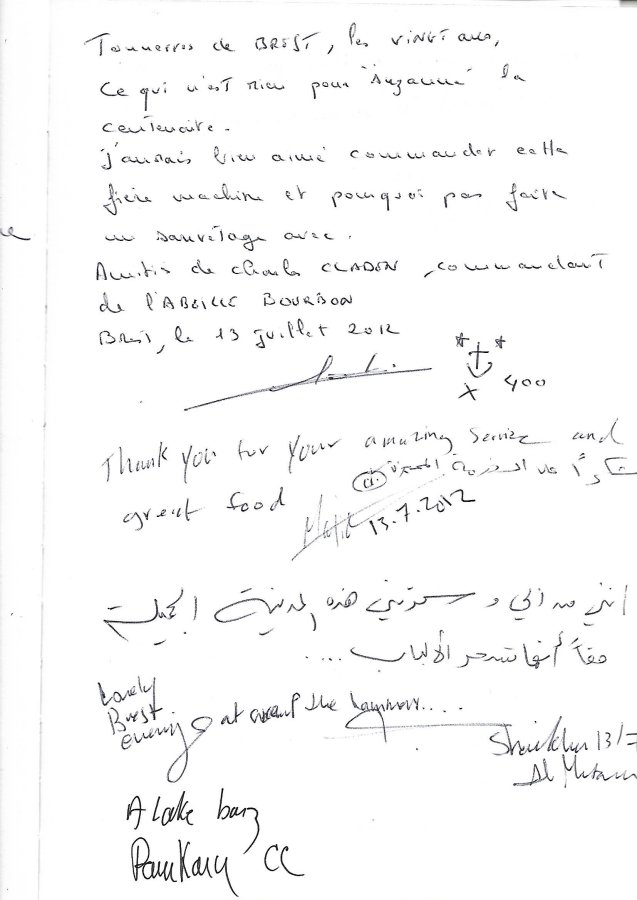 Tonnerres de BREST, les VINGT ans,
Ce qui n'est rien pour "Suzanne" la
centenaire.
J'aurais bien aimé commander cette
fière machine et pourquoi pas faire
un sauvetage avec.
Amitiés de Charles CLADEN, commandant
de l'ABEILLE BOURBON
BREST, le 13 juillet 2012
400
Thank you for your amazing service and
شكراً على الخدمة المميزة
great food
13.7.2012
هذه المدينة الجميلة
حقاً أنها تسحر الألباب....
Lovely
Brest
evening at the
13/7
Al